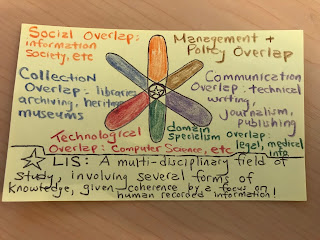 Social Overlap:
information
Society, etc
Management +
Policy Overlap
Collection
Overlap: libraries
archiving, heritage
museums
Communication
Overlap: technical
writing,
journalism,
publishing
Technological
Overlap: Computer Science, etc
domain
specialism overlap:
legal, medical
info
LIS: A multi-disciplinary field of
study, involving several forms of
knowledge, given coherence by a focus on
human recorded information!